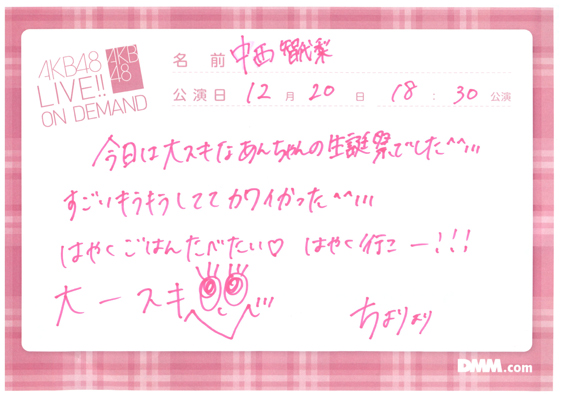 AKB48
LIVE!!
ON DEMAND
AKB
48
名 前 中西智代梨
公演日 12 月 20 日 18 : 30 公演
今日は大スキなあんちゃんの生誕祭でした^^,,,
すごいキラキラしててカワイかった^^,,,
はやくごはんたべたい♡ はやく行こー!!!
大ースキ
ちよりより
DMM.com